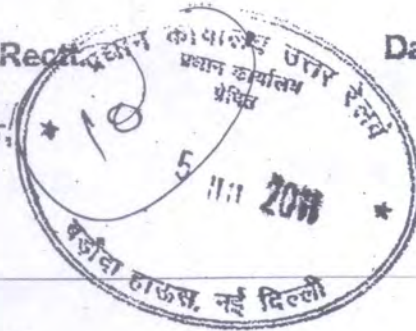 Rectt.
Da
प्रधान कार्यालय उत्तर रेलवे
प्रधान कार्यालय
प्रेषित
5
बड़ौदा हाऊस, नई दिल्ली